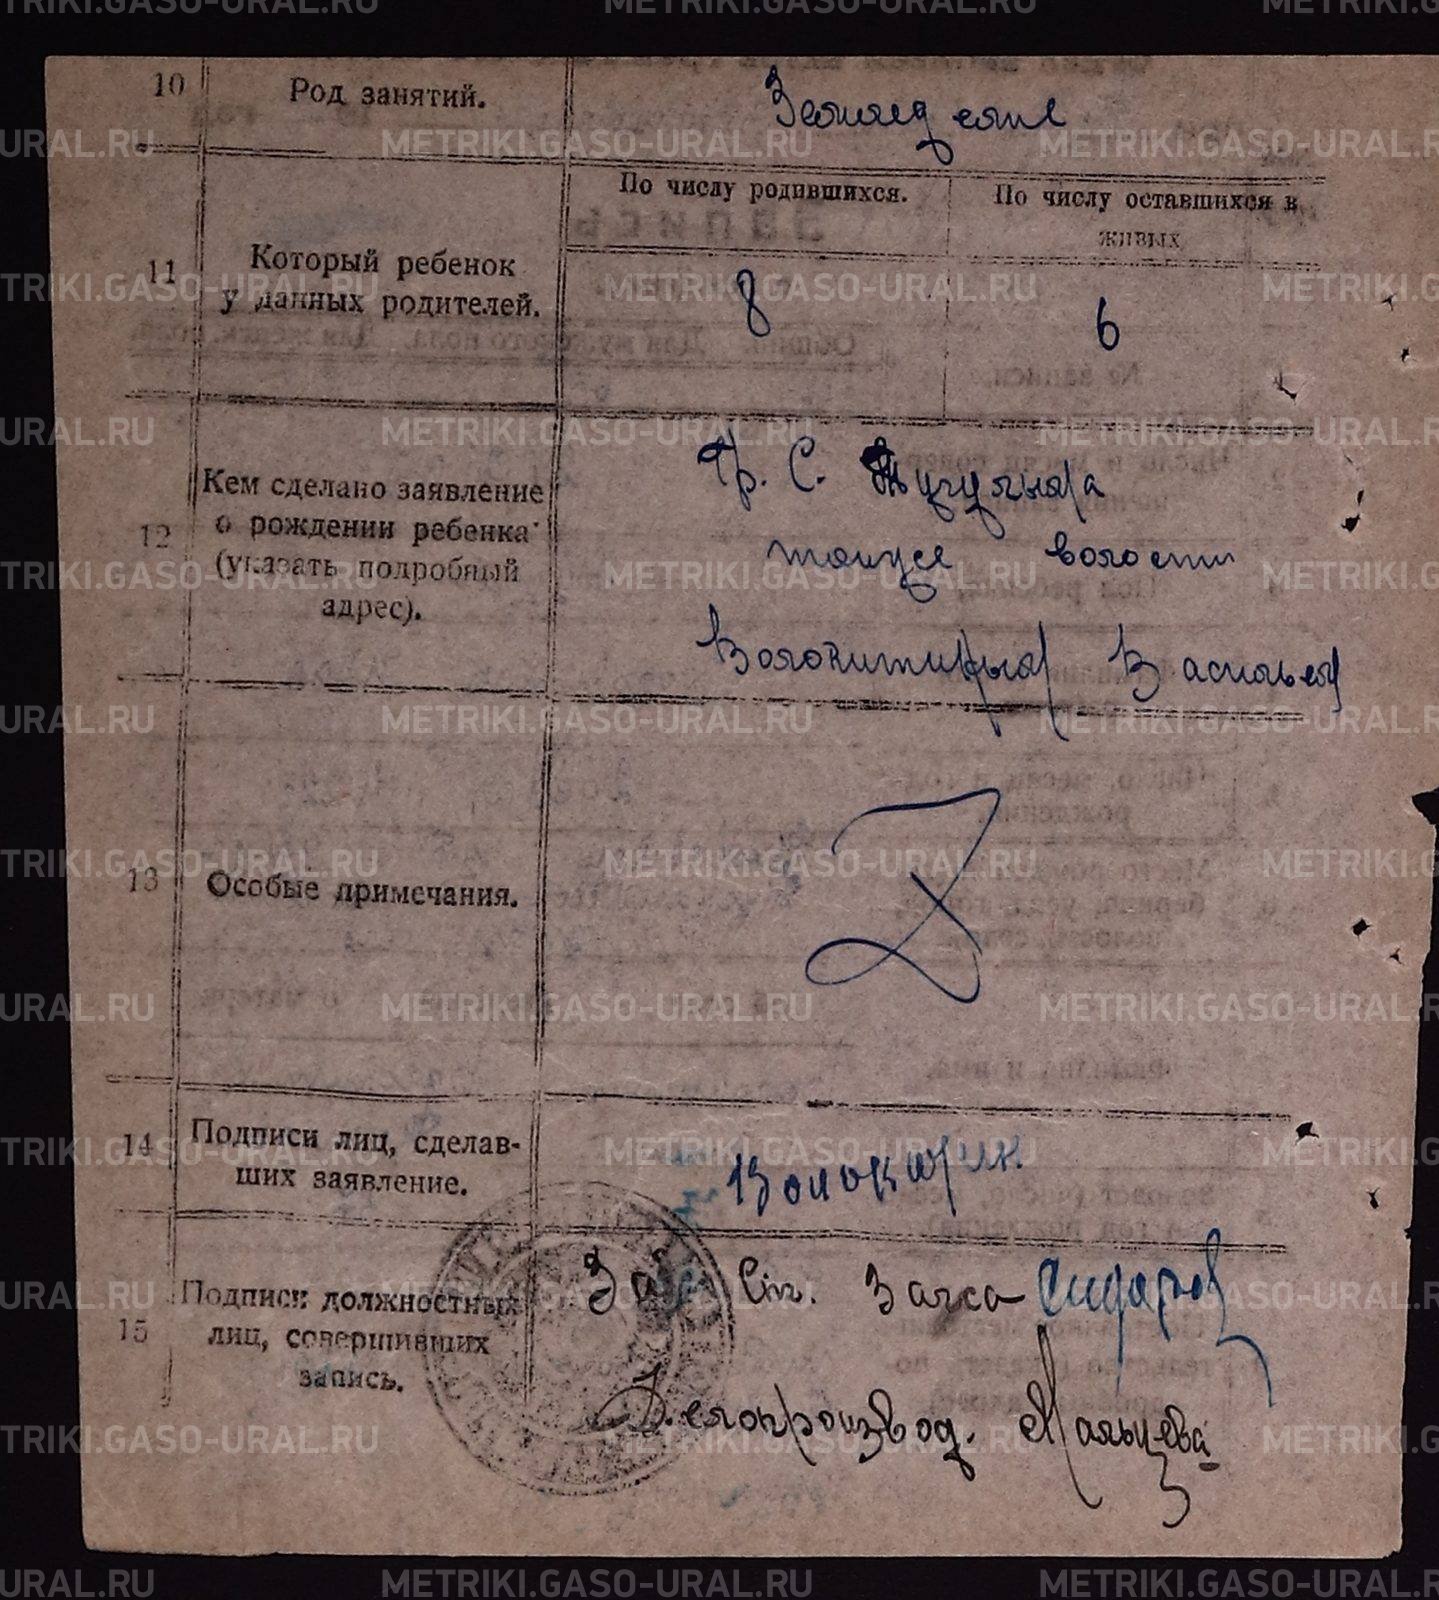 10 Род занятий. Земледелие
11 Который ребенок у данных родителей.
По числу родившихся. По числу оставшихся в живых.
8 6
12 Кем сделано заявление о рождении ребенка (указать подробный адрес).
Гр. С.
волости
Волокитиным Васильем
13 Особые примечания.
14 Подписи лиц, сделавших заявление. Волокитин
15 Подписи должностных лиц, совершивших запись.
Зав. Загса Сидоров
Делопроизвод. Мальцева
METRIKI.GASO-URAL.RU